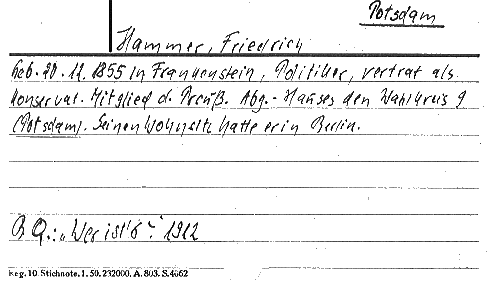 Potsdam
Hammer, Friedrich
Geb. 20.12.1855 in Frankenstein, Politiker, vertrat als
konservat. Mitglied d. Preuß. Abg.-Hauses den Wahlkreis 9
(Potsdam). Seinen Wohnsitz hatte er in Berlin.
B Q.: „Wer ist's“. 1912
Reg. 10. Stichnote. 1. 50. 232000. A. 803. S. 4662